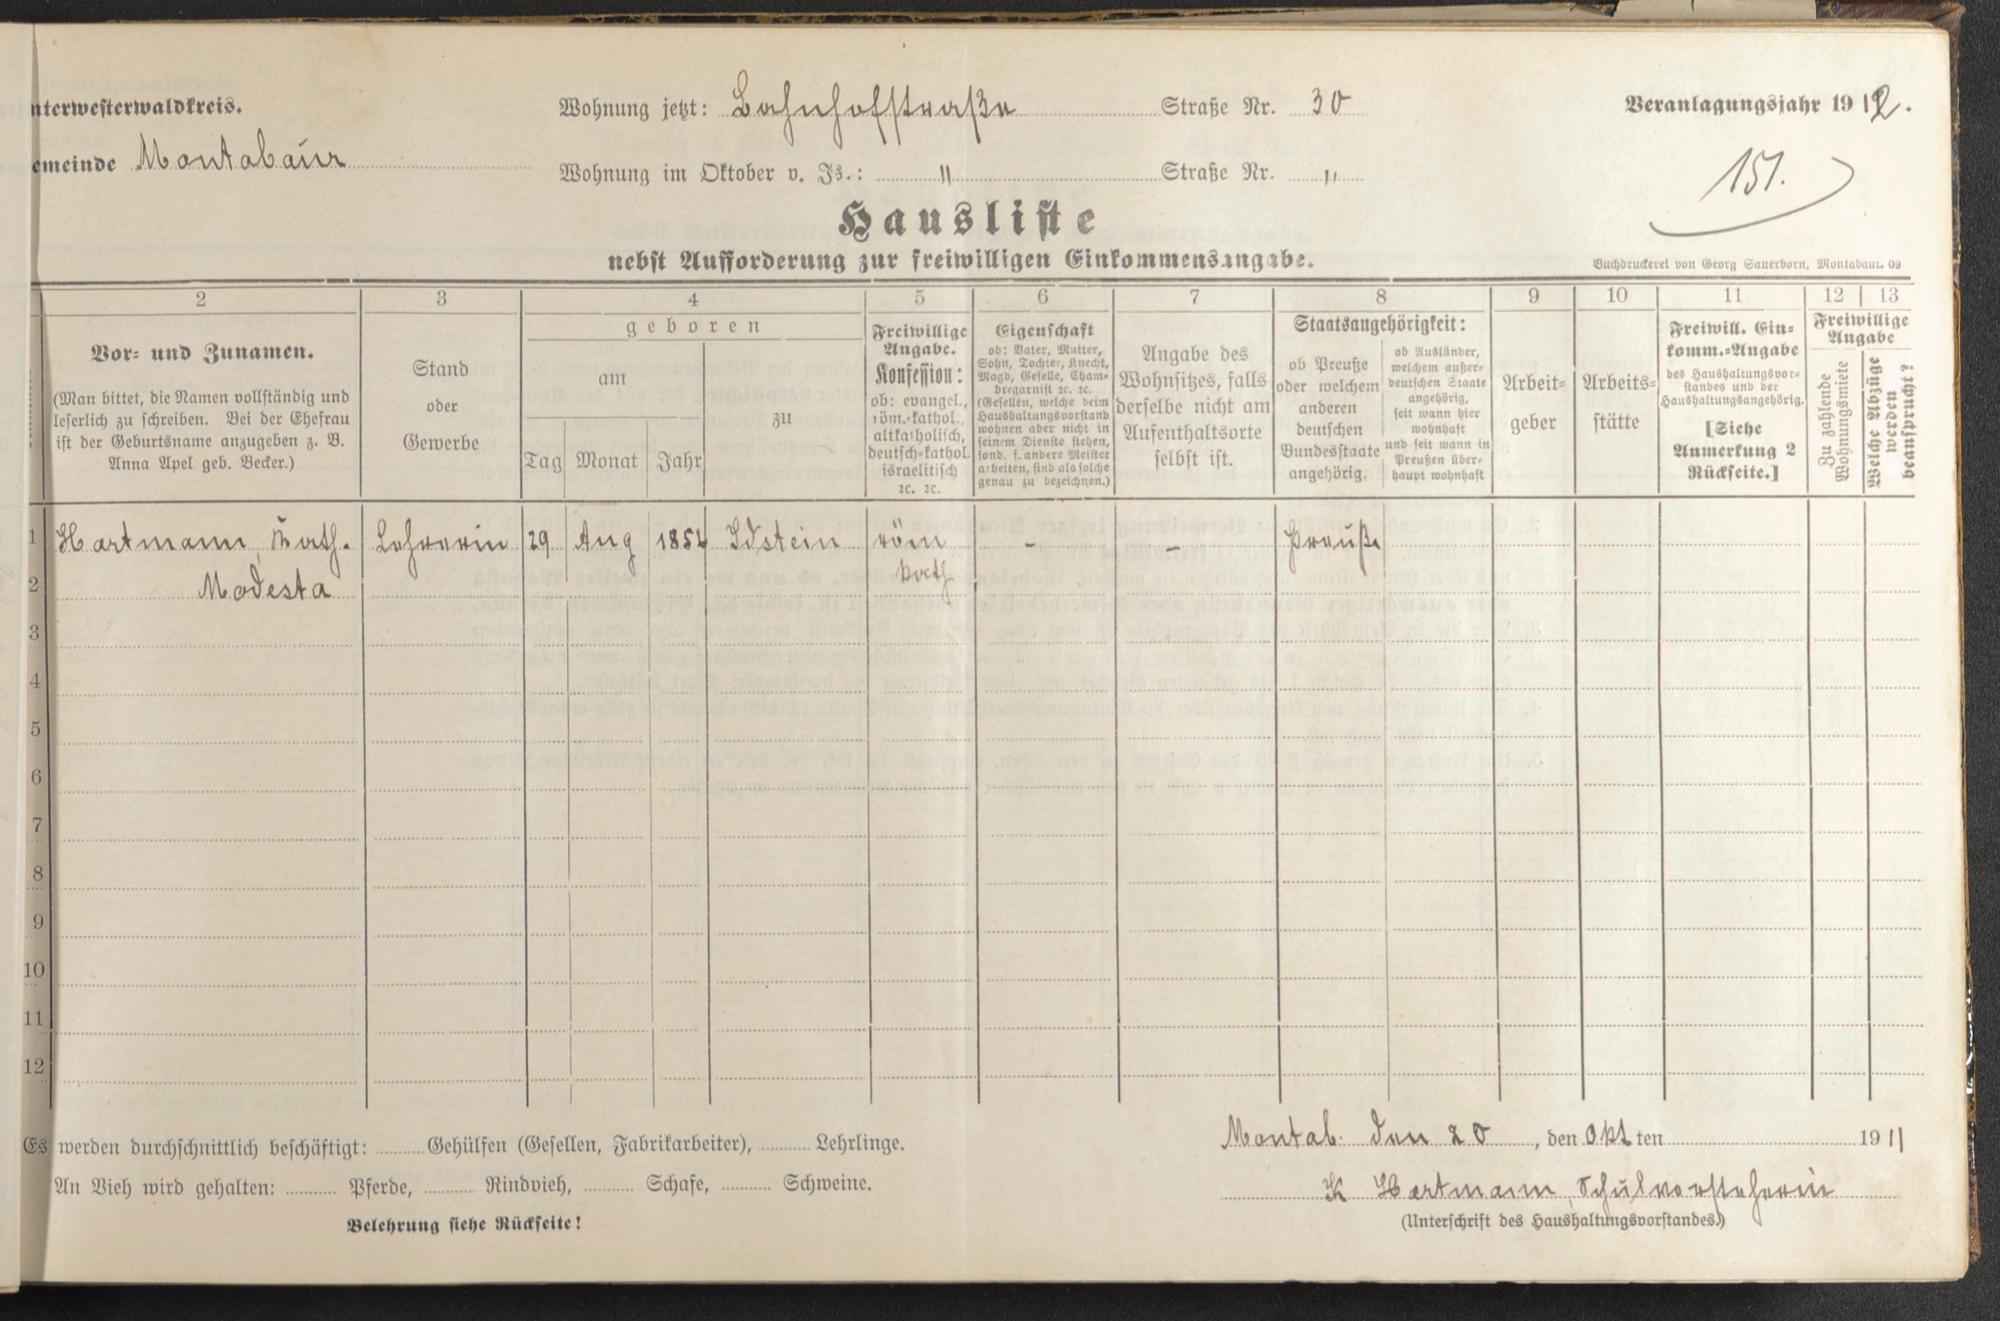 nterwesterwaldkreis.
emeinde Montabaur
Wohnung jetzt: Bahnhofstraße Straße Nr. 30
Wohnung im Oktober v. Js.: " Straße Nr. "
Veranlagungsjahr 1912.
151.
Hausliste
nebst Aufforderung zur freiwilligen Einkommensangabe.
Buchdruckerei von Georg Sauerborn, Montabaur. 09
2 3 4 5 6 7 8 9 10 11 12 13
Vor- und Zunamen.
(Man bittet, die Namen vollständig und
leserlich zu schreiben. Bei der Ehefrau
ist der Geburtsname anzugeben z. B.
Anna Apel geb. Becker.)
Stand
oder
Gewerbe
geboren
am
zu
Tag Monat Jahr
Freiwillige
Angabe.
Konfession:
ob: evangel.,
röm.-kathol.,
altkatholisch,
deutsch-kathol.
israelitisch
ꝛc. ꝛc.
Eigenschaft
ob: Vater, Mutter,
Sohn, Tochter, Knecht,
Magd, Geselle, Cham-
bergarnist ꝛc. ꝛc.
(Gesellen, welche beim
Haushaltungsvorstand
wohnen aber nicht in
seinem Dienste stehen,
sond. f. andere Meister
arbeiten, sind als solche
genau zu bezeichnen.)
Angabe des
Wohnsitzes, falls
derselbe nicht am
Aufenthaltsorte
selbst ist.
Staatsangehörigkeit:
ob Preuße
oder welchem
anderen
deutschen
Bundesstaate
angehörig.
ob Ausländer,
welchem außer-
deutschen Staate
angehörig,
seit wann hier
wohnhaft
und seit wann in
Preußen über-
haupt wohnhaft
Arbeit-
geber
Arbeits-
stätte
Freiwill. Ein-
komm.-Angabe
des Haushaltungsvor-
standes und der
Haushaltungsangehörig.
[Siehe
Anmerkung 2
Rückseite.]
Freiwillige
Angabe
Zu zahlende
Wohnungsmiete
Welche Abzüge
werden
beansprucht?
1 Hartmann, Kath. Lehrerin 29 Aug 1852 Idstein röm - - Preuße
2 Modesta kath
3
4
5
6
7
8
9
10
11
12
Es werden durchschnittlich beschäftigt: Gehülfen (Gesellen, Fabrikarbeiter), Lehrlinge.
An Vieh wird gehalten: Pferde, Rindvieh, Schafe, Schweine.
Belehrung siehe Rückseite!
Montab. den 20, den Okt ten 1911
K Hartmann, Schulvorsteherin
(Unterschrift des Haushaltungsvorstandes)